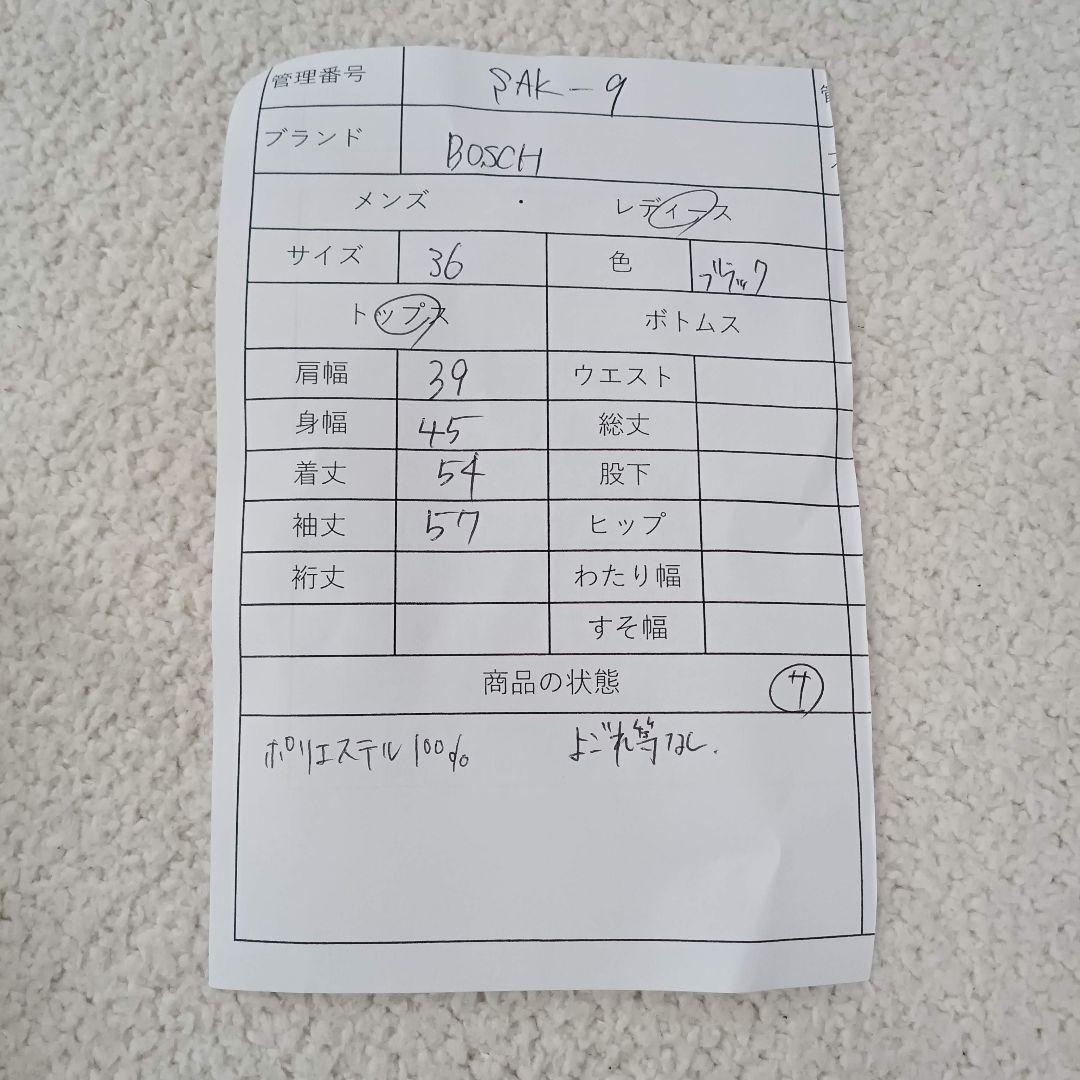 管理番号 SAK-9
ブランド BOSCH
メンズ ・ レディース
サイズ 36 色 ブラック
トップス ボトムス
肩幅 39 ウエスト
身幅 45 総丈
着丈 54 股下
袖丈 57 ヒップ
裄丈 わたり幅
すそ幅
商品の状態 サ
ポリエステル100% よごれ等なし.